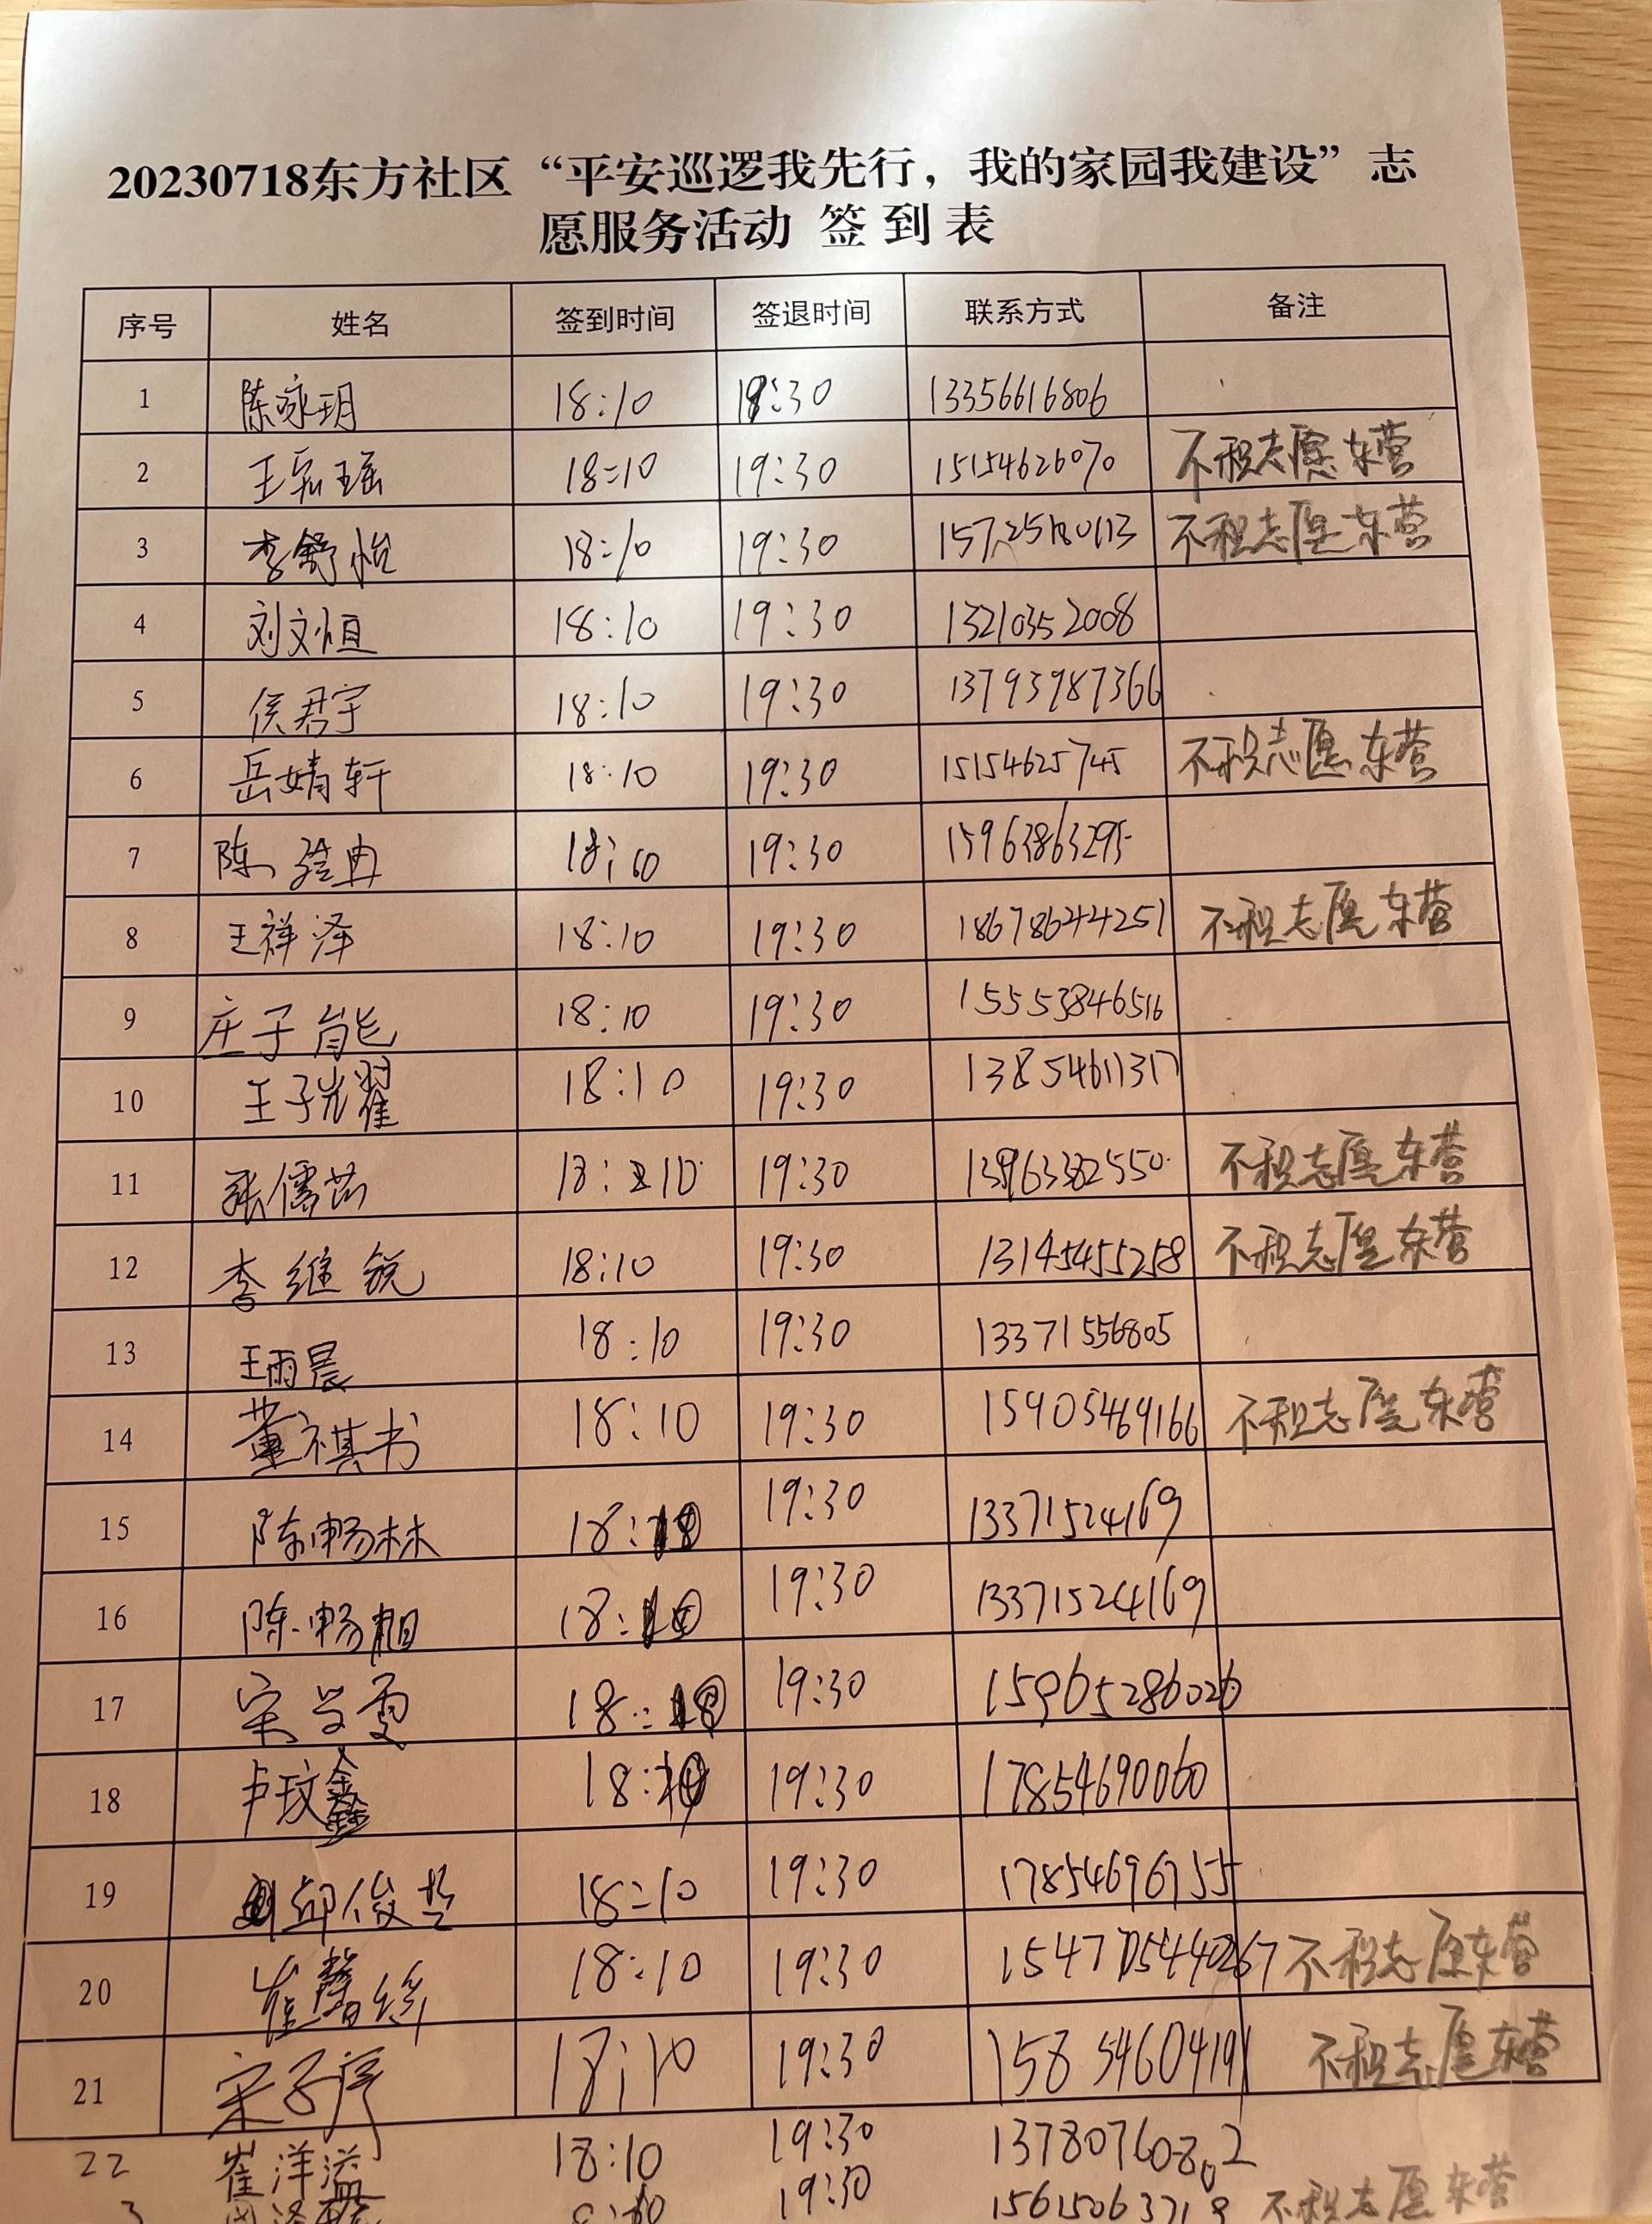 20230718东方社区“平安巡逻我先行，我的家园我建设”志
愿服务活动 签到表
序号 姓名 签到时间 签退时间 联系方式 备注
1 陈咏玥 18:10 19:30 13356616806
2 王宏瑶 18:10 19:30 15154626070 不积志愿东营
3 李舒怡 18:10 19:30 不积志愿东营
4 刘文恒 18:10 19:30 13210352008
5 侯君宇 18:10 19:30 13793987366
6 岳婧轩 18:10 19:30 15154625745 不积志愿东营
7 陈 18:10 19:30 15963863295
8 王祥泽 18:10 19:30 18678644251 不积志愿东营
9 庄子能 18:10 19:30 15553846516
10 王子耀 18:10 19:30 13854611317
11 张儒茹 18:10 19:30 不积志愿东营
12 李维锐 18:10 19:30 13145455258 不积志愿东营
13 王雨晨 18:10 19:30 13371556805
14 董祺书 18:10 19:30 15905469166 不积志愿东营
15 陈畅林 18:10 19:30 13371524169
16 陈畅 18:10 19:30 13371524169
17 宋 18:10 19:30 15965286026
18 卢玟鑫 18:10 19:30 17854690060
19 邱俊哲 18:10 19:30 17854696755
20 崔馨 18:10 19:30 不积志愿东营
21 宋子序 18:10 19:30 15854604191 不积志愿东营
22 崔洋溢 18:10 19:30 13780760802
3 19:30 不积志愿东营